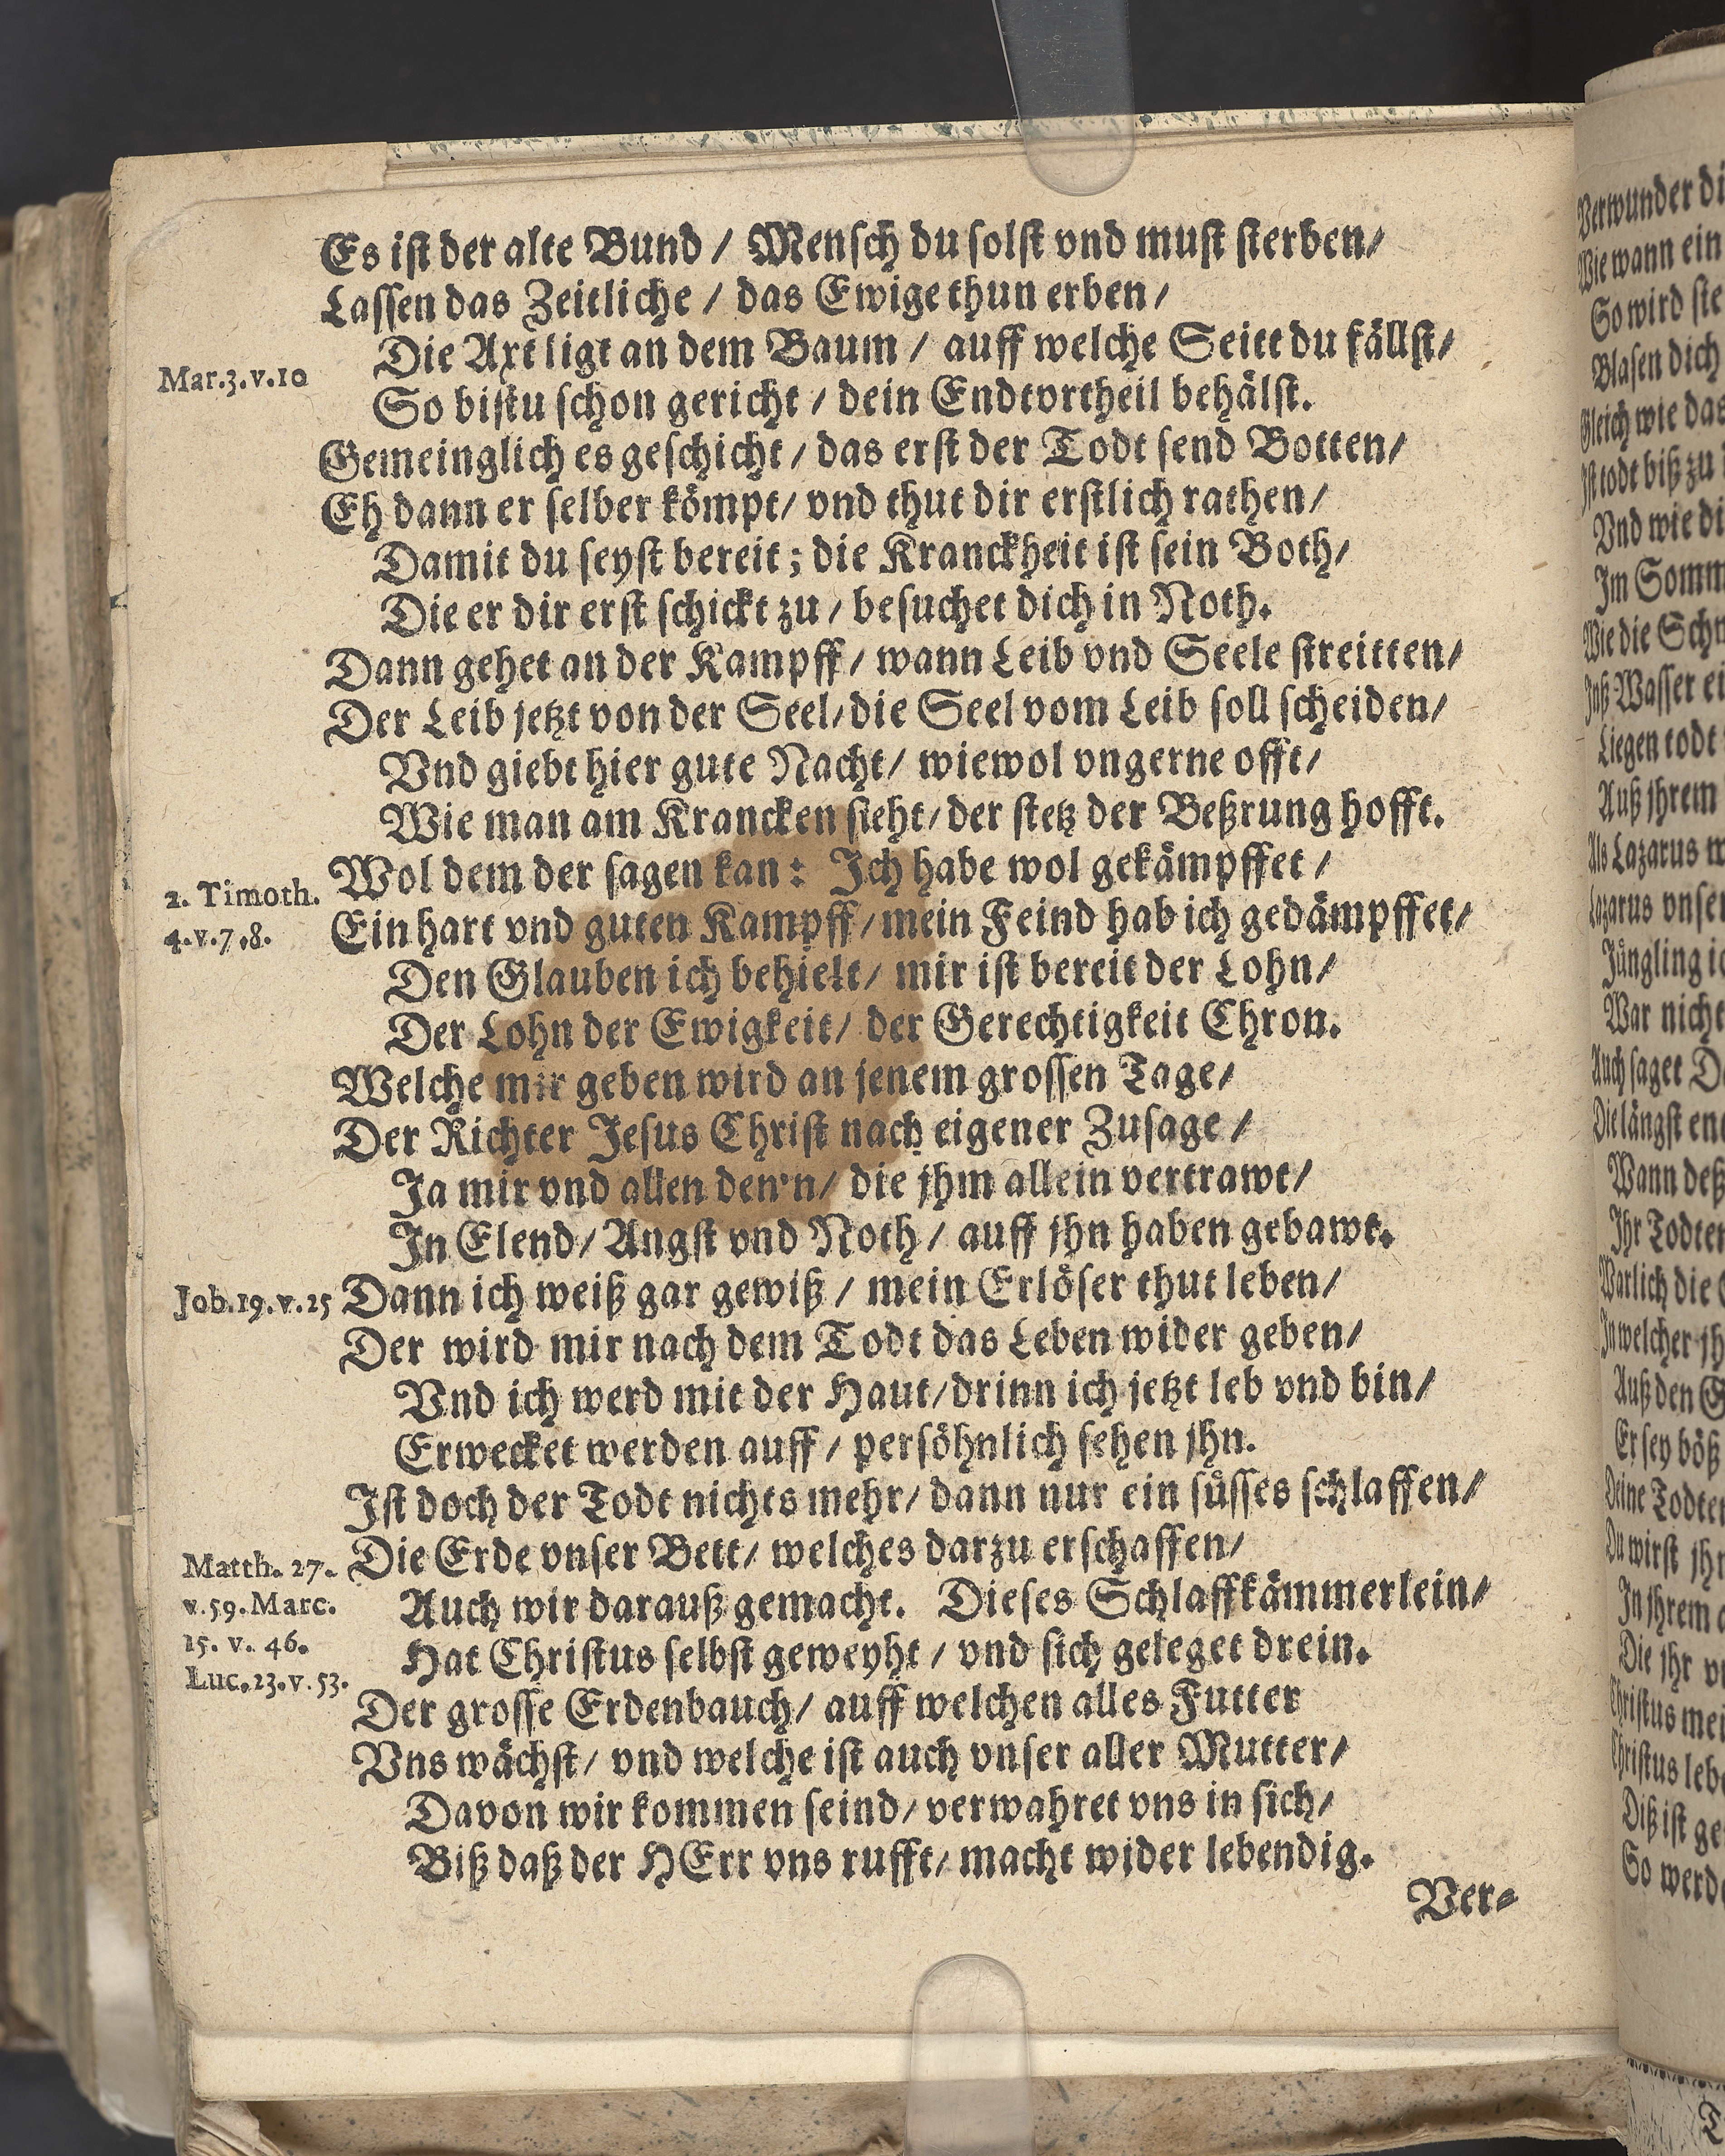 Es iſt der alte Bund / Menſch du ſolſt vnd muſt ſterben/
Laſſen das Zeitliche / das Ewige thun erben /
Die Axt ligt an dem Baum / auff welche Seitt du fällſt/
Mar.3.v.10
So biſtu ſchon gericht / dein Endtvrtheil behälſt.
Gemeinglich es geſchicht / das erſt der Todt ſend Botten/
Eh dann er ſelber kömpt/ vnd thut dir erſtlich rathen/
Damit du ſeyſt bereit; die Kranckheit iſt ſein Both/
Die er dir erſt ſchickt zu / beſuchet dich in Noth.
Dann gehet an der Kampff / wann Leib vnd Seele ſtreitten/
Der Leib jetzt von der Seel/ die Seel vom Leib ſoll ſcheiden/
Vnd giebt hier gute Nacht/ wiewol vngerne offt/
Wie man am Krancken ſieht/ der ſtetz der Beßrung hofft.
Wol dem der ſagen kan: Ich habe wol gekämpffet /
2. Timoth.
4.v.7.8.
Ein hart vnd guten Kampff / mein Feind hab ich gedämpffet/
Den Glauben ich behielt/ mir iſt bereit der Lohn/
Der Lohn der Ewigkeit/ der Gerechtigkeit Chron.
Welche mir geben wird an jenem groſſen Tage/
Der Richter Jeſus Chriſt nach eigener Zuſage /
Ja mir vnd allen den'n/ die jhm allein vertrawt/
In Elend/ Angſt vnd Noth / auff jhn haben gebawt.
Job.19.v.25
Dann ich weiß gar gewiß / mein Erlöſer thut leben/
Der wird mir nach dem Todt das Leben wider geben/
Vnd ich werd mit der Haut/ drinn ich jetzt leb vnd bin/
Erwecket werden auff / perſöhnlich ſehen jhn.
Iſt doch der Todt nichts mehr/ dann nur ein ſüſſes ſchlaffen/
Die Erde vnſer Bett/ welches darzu erſchaffen/
Matth. 27.
v.59.Marc.
15. v. 46.
Luc.23.v.53.
Auch wir darauß gemacht. Dieſes Schlaffkämmerlein/
Hat Chriſtus ſelbſt geweyht / vnd ſich geleget drein.
Der groſſe Erdenbauch/ auff welchen alles Futter
Vns wächſt/ vnd welche iſt auch vnſer aller Mutter/
Davon wir kommen ſeind/ verwahret vns in ſich/
Biß daß der HErr vns rufft/ macht wider lebendig.
Ver-
Verwunder di
Wie wann ein
So wird ſie
Blaſen dich
Gleich wie das
Iſt todt biß zu
Vnd wie di
Im Somm
Wie die Schn
Waſſer ei
Liegen todt
Auß jhrem
Als Lazarus w
Lazarus vnſer
Jüngling ic
War nicht
Auch ſaget D
Die längſt en
Wann deß
Ihr Todten
Warlich die
In welcher jh
Auß den G
Er ſey böß
Deine Todten
Du wirſt jhr
In jhrem
Die jhr v
Chriſtus mei
Chriſtus lebe
Diß iſt ge
So werde